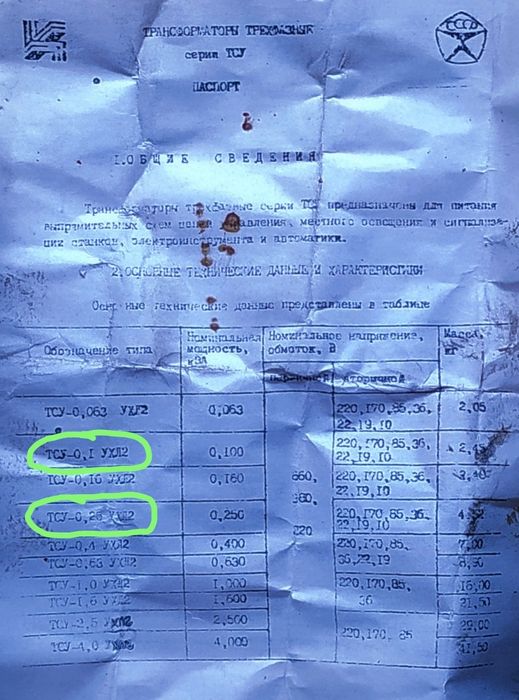 СССР
ТРАНСФОРМАТОРЫ ТРЕХФАЗНЫЕ
серии ТСУ
ПАСПОРТ
I. ОБЩИЕ СВЕДЕНИЯ
Трансформаторы трехфазные серии ТСУ предназначены для питания
выпрямительных схем цепей управления, местного освещения и сигнализа-
ции станков, электроинструмента и автоматики.
2. ОСНОВНЫЕ ТЕХНИЧЕСКИЕ ДАННЫЕ И ХАРАКТЕРИСТИКИ
Основные технические данные представлены в таблице
Обозначение типа
Номинальная мощность, кВА
Номинальное напряжение, обмоток, В
Масса, кг
вторичной
ТСУ-0,063 УХЛ2 0,063 220,170,85,36, 2,05
22,19,10
ТСУ-0,1 УХЛ2 0,100 220,170,85,36,
22,19,10
ТСУ-0,16 УХЛ2 0,160 660, 220,170,85,36,
380, 22,19,10
ТСУ-0,25 УХЛ2 0,250 220,170,85,36,
220 22,19,10
ТСУ-0,4 УХЛ2 0,400 220,170,85, 7,00
ТСУ-0,63 УХЛ2 0,630 36,22,19
ТСУ-1,0 УХЛ2 1,000 220,170,85, 16,00
ТСУ-1,6 УХЛ2 1,600 36 21,50
ТСУ-2,5 УХЛ2 2,500 220,170,85 29,00
ТСУ-4,0 УХЛ2 4,000